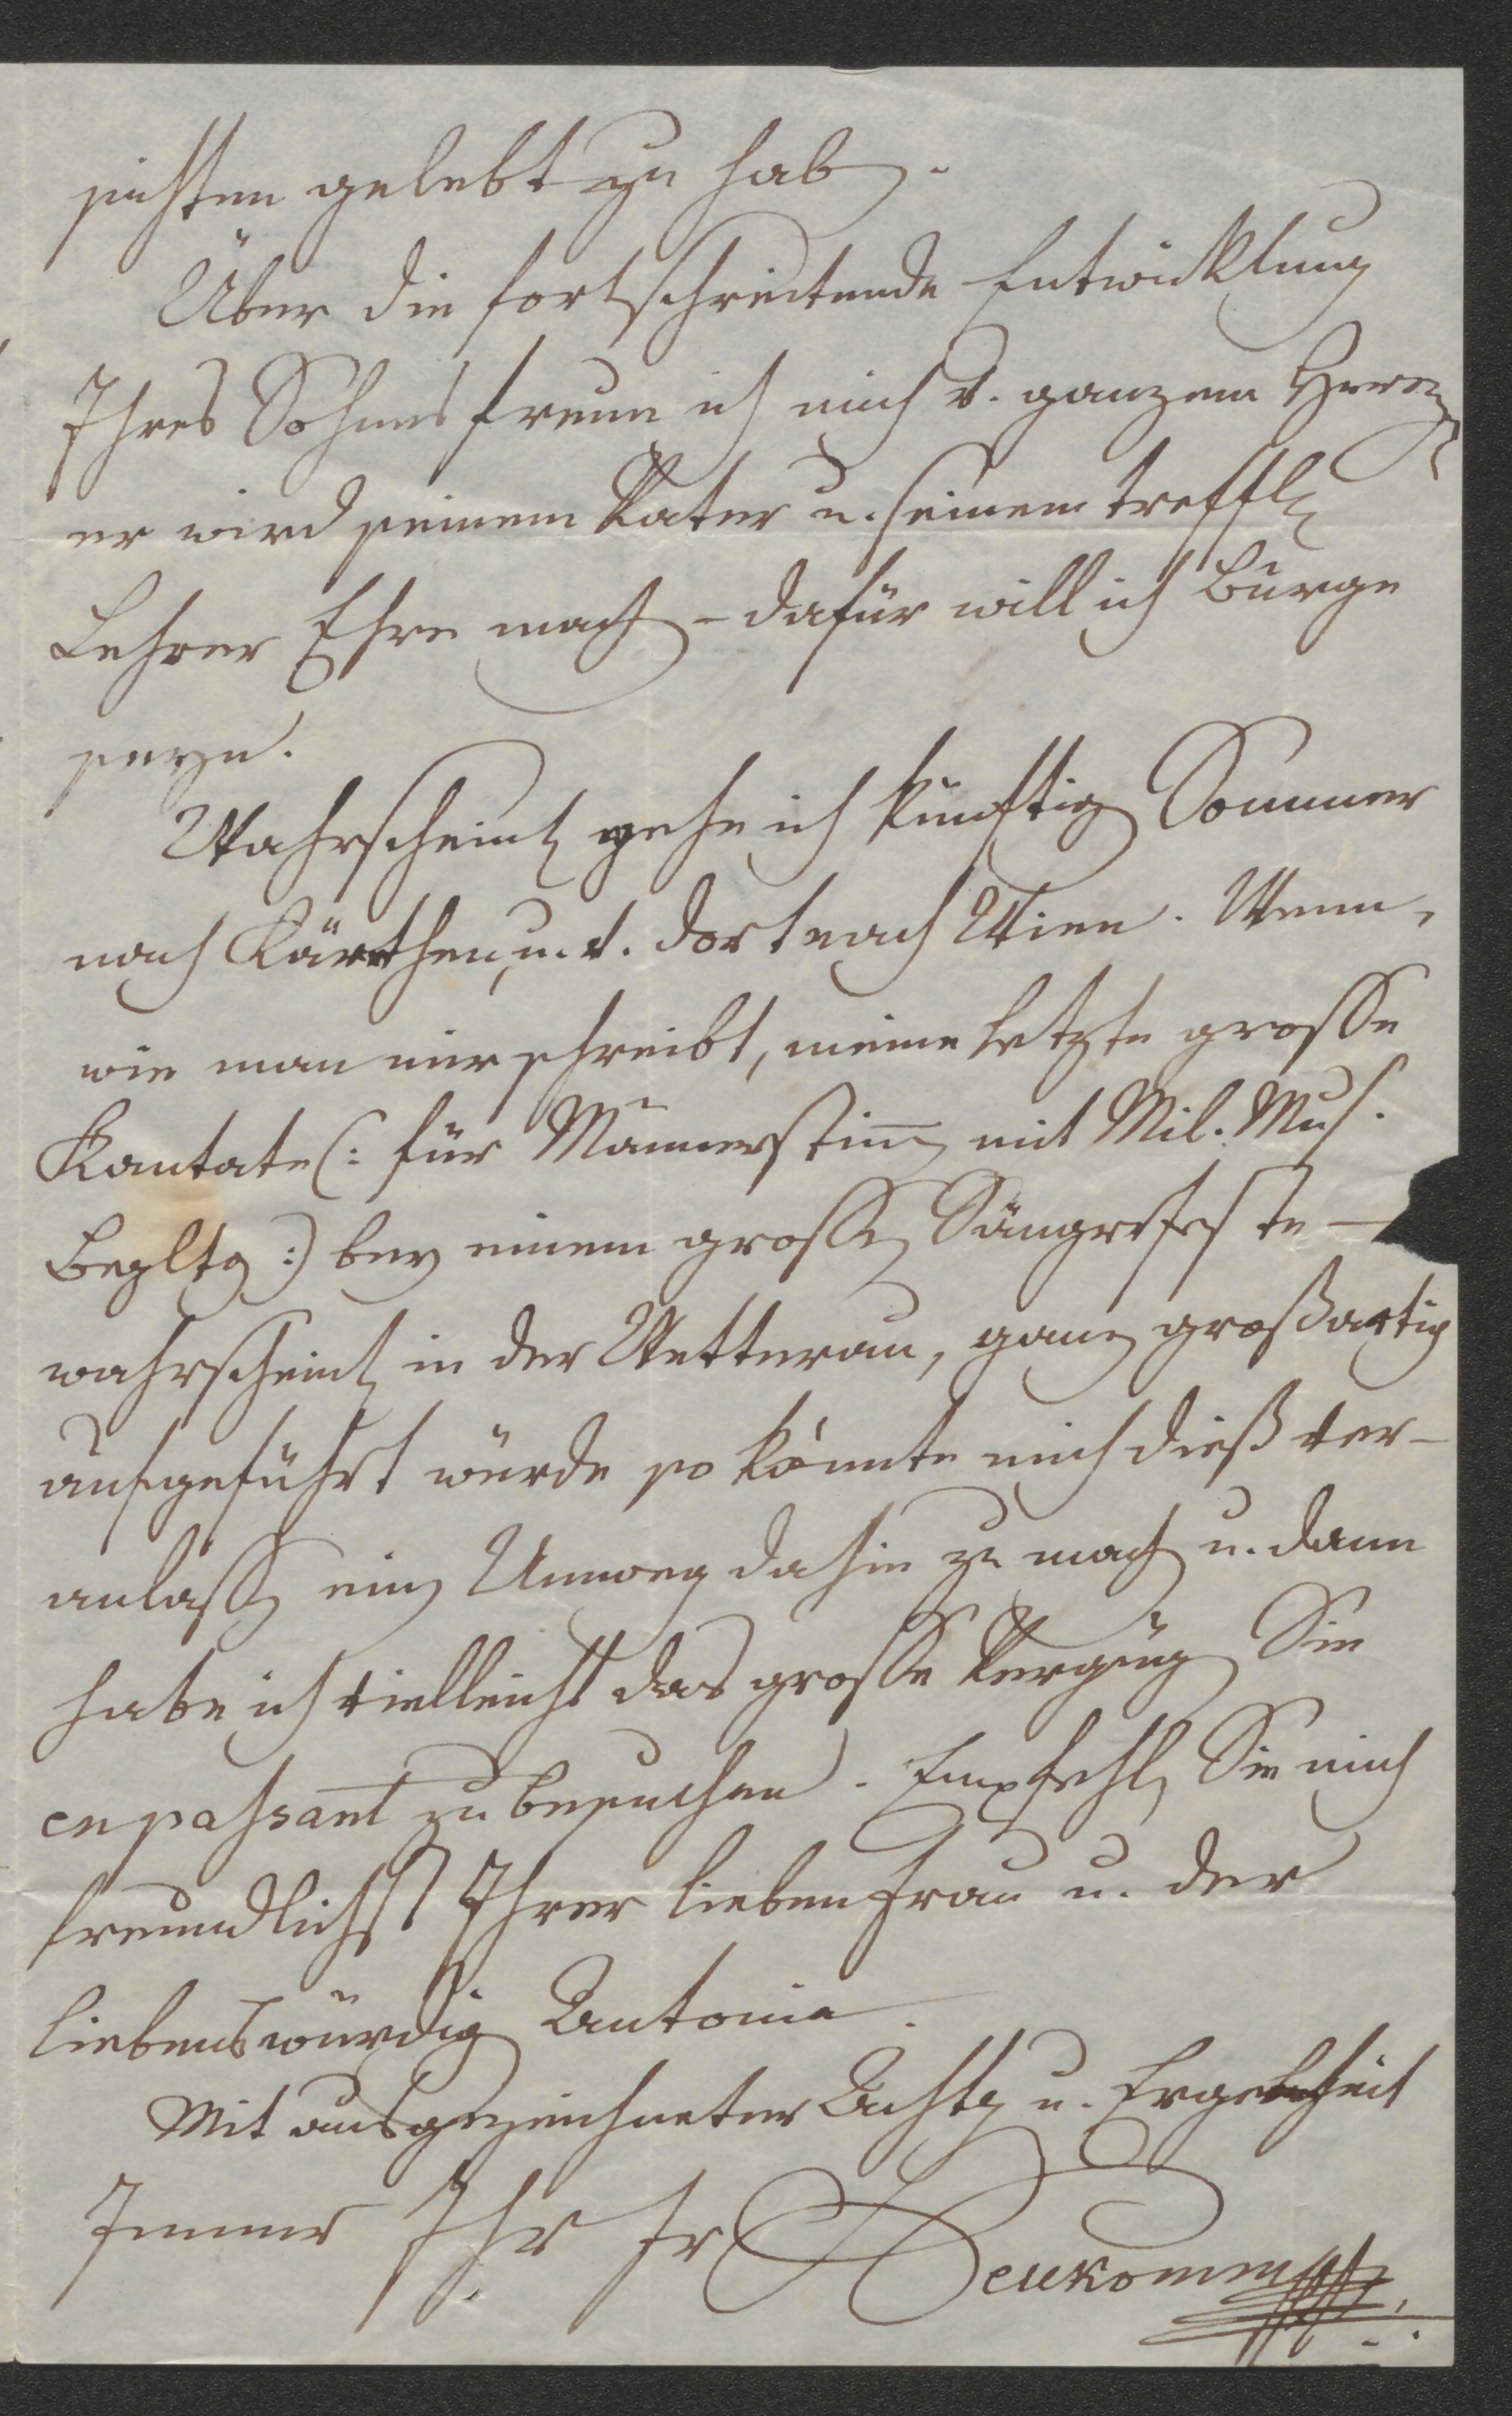 sichten gelebt zu hab.
Über die fortschreitende Entwicklung
Ihres Sohnes freue ich mich v. ganzem Herzen
er wird seinem Vater u. seinem treffl
Lehrer Ehre mach – dafür will ich Bürge
seyn.
Wahrscheinl gehe ich künftig Sommer
nach Kärnthen, u. v. dort nach Wien. Wenn,
wie man mir schreibt, meine letzte grosse
Kantate (: für Männerstim mit Mil. Mus.
Begltg :) bey einem grossen Sängerfeste –
wahrscheinl in der Wetterau, ganz großartig
aufgeführt würde so könnte mich dieß ver-
anlassen ein Umweg dahin zu mach u. dann
habe ich vielleicht das grosse Vergnüg Sie
en passant zu besuchen. Empfehl Sie mich
freundlichst Ihrer lieben Frau u. der
liebenswürdig Antonie.
Mit ausgezeichneter Achtg u. Ergebenheit
Immer Ihr Fr Neukomm